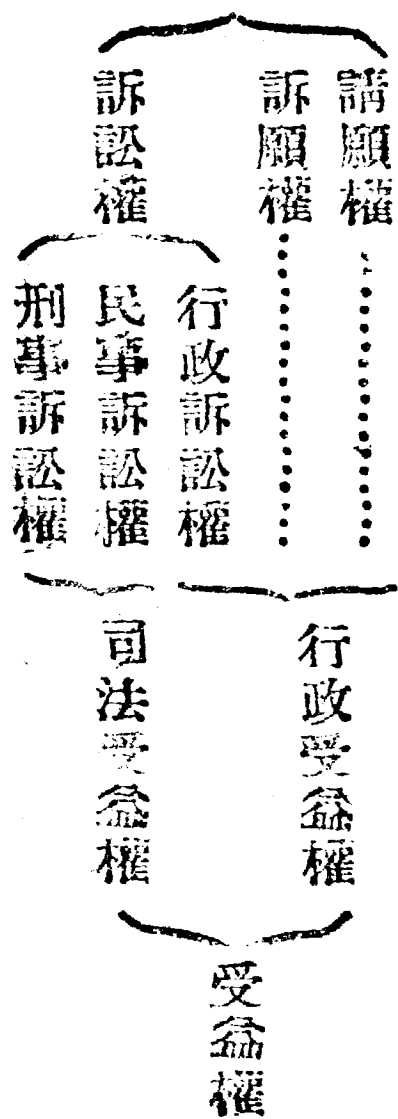 請願權
訴願權
訴訟權
行政訴訟權
民事訴訟權
刑事訴訟權
行政受益權
司法受益權
受益權